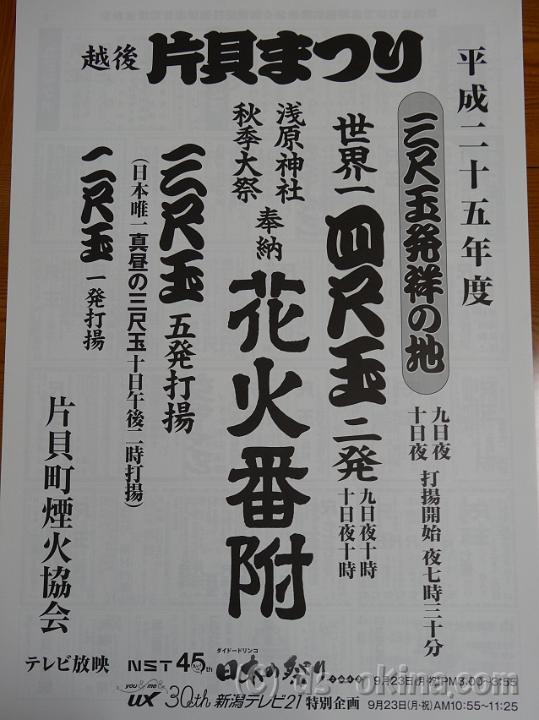 越後 片貝まつり
平成二十五年度
三尺玉発祥の地
九日夜
十日夜
打揚開始 夜七時三十分
世界一 四尺玉 二発
九日夜十時
十日夜十時
浅原神社
秋季大祭
奉納
花火番附
三尺玉 五発打揚
(日本唯一真昼の三尺玉十日午後二時打揚)
二尺玉 一発打揚
片貝町煙火協会
テレビ放映 NST 45th ダイドードリンコ 日本の祭り 9月23日(月・祝)PM3:00~3:55
you & me & UX 30th 新潟テレビ21 特別企画 9月23日(月・祝)AM10:55~11:25